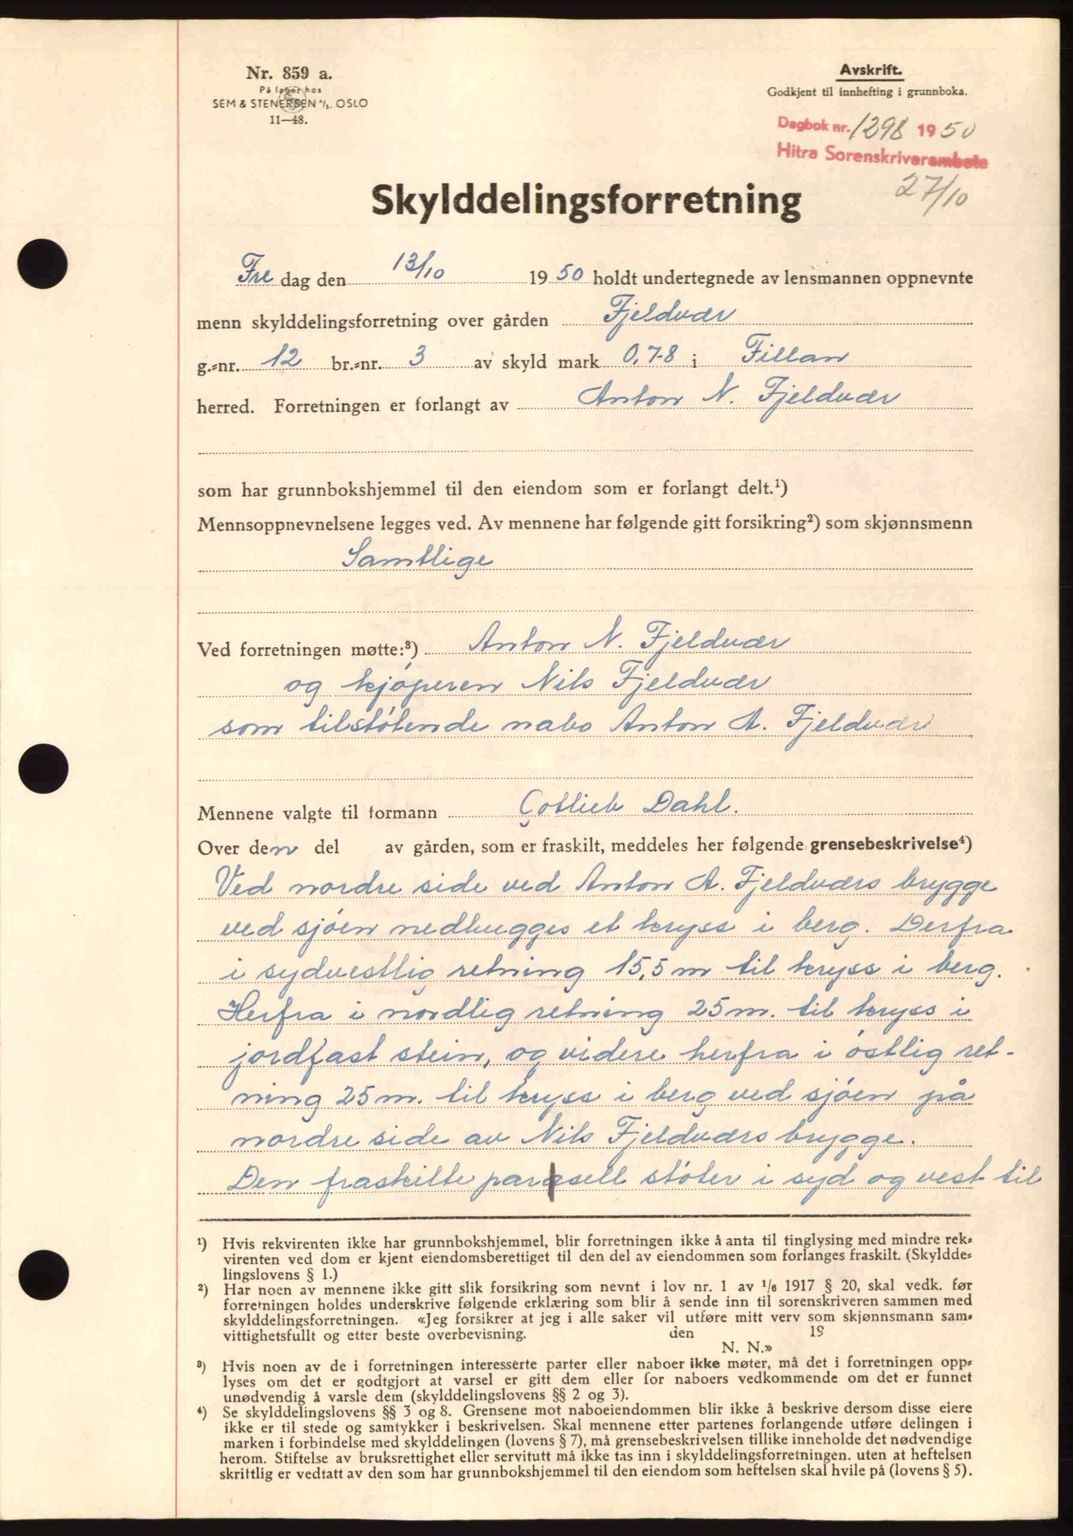 Nr. 859 a.
På lager hos
SEM & STENERSEN A/S. OSLO
11—48.
Avskrift.
Godkjent til innhefting i grunnboka.
Dagbok nr. 1298 1950
Hitra Sorenskriverembete
27/10
Skylddelingsforretning
Fre dag den 13/10 1950 holdt undertegnede av lensmannen oppnevnte
menn skylddelingsforretning over gården Fjeldvær
g.-nr. 12 br.-nr. 3 av skyld mark 0,78 i Fillan
herred. Forretningen er forlangt av Anton N. Fjeldvær
som har grunnbokshjemmel til den eiendom som er forlangt delt.¹)
Mennsoppnevnelsene legges ved. Av mennene har følgende gitt forsikring²) som skjønnsmenn
Samtlige
Ved forretningen møtte:³) Anton N. Fjeldvær
og kjøperen Nils Fjeldvær
som tilstøtende nabo Anton A. Fjeldvær
Mennene valgte til formann Gotlieb Dahl.
Over den del av gården, som er fraskilt, meddeles her følgende grensebeskrivelse⁴)
Ved nordre side ved Anton A. Fjeldværs brygge
ved sjøen nedhugges et kryss i berg. Derfra
i sydvestlig retning 15,5 m til kryss i berg.
Herfra i nordlig retning 25 m. til kryss i
jordfast stein, og videre herfra i østlig ret-
ning 25 m. til kryss i berg ved sjøen på
nordre side av Nils Fjeldværs brygge.
Den fraskilte parsell støter i syd og vest til
¹) Hvis rekvirenten ikke har grunnbokshjemmel, blir forretningen ikke å anta til tinglysing med mindre rek-
virenten ved dom er kjent eiendomsberettiget til den del av eiendommen som forlanges fraskilt. (Skyldde-
lingslovens § 1.)
²) Har noen av mennene ikke gitt slik forsikring som nevnt i lov nr. 1 av 1/6 1917 § 20, skal vedk. før
forretningen holdes underskrive følgende erklæring som blir å sende inn til sorenskriveren sammen med
skylddelingsforretningen. «Jeg forsikrer at jeg i alle saker vil utføre mitt verv som skjønnsmann sam-
vittighetsfullt og etter beste overbevisning. den 19
N. N.»
³) Hvis noen av de i forretningen interesserte parter eller naboer ikke møter, må det i forretningen opp-
lyses om det er godtgjort at varsel er gitt dem eller for naboers vedkommende om det er funnet
unødvendig å varsle dem (skylddelingslovens §§ 2 og 3).
⁴) Se skylddelingslovens §§ 3 og 8. Grensene mot naboeiendommen blir ikke å beskrive dersom disse eiere
ikke er til stede og samtykker i beskrivelsen. Skal mennene etter partenes forlangende utføre delingen i
marken i forbindelse med skylddelingen (lovens § 7), må grensebeskrivelsen tillike inneholde det nødvendige
herom. Stiftelse av bruksrettighet eller servitutt må ikke tas inn i skylddelingsforretningen. uten at heftelsen
skriftlig er vedtatt av den som har grunnbokshjemmel til den eiendom som heftelsen skal hvile på (lovens § 5).